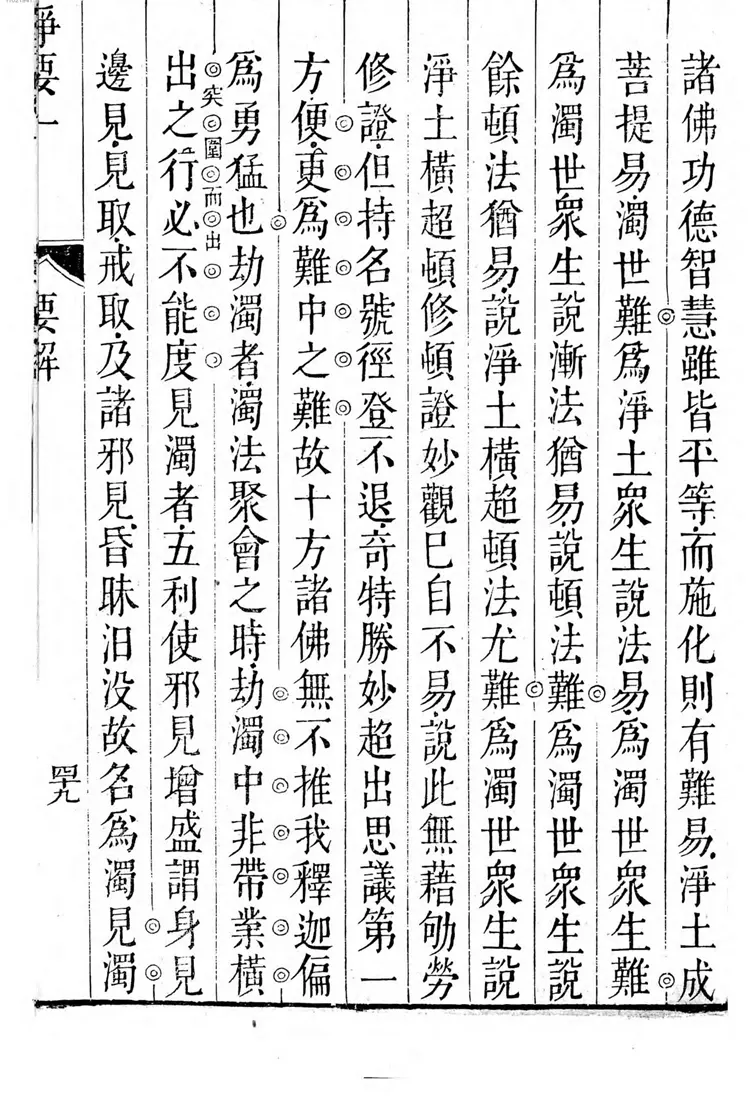 諸佛功德智慧雖皆平等而施化則有難易淨土成
菩提易濁世難為淨土眾生說法易為濁世眾生難
為濁世眾生說漸法猶易說頓法難為濁世眾生說
餘頓法猶易說淨土橫超頓法尤難為濁世眾生說
淨土橫超頓修頓證妙觀已自不易說此無藉劬勞
修證但持名號徑登不退奇特勝妙超出思議第一
方便更為難中之難故十方諸佛無不推我釋迦偏
為勇猛也劫濁者濁法聚會之時劫濁中非帶業橫
突圍而出
出之行必不能度見濁者五利使邪見增盛謂身見
邊見見取戒取及諸邪見昏昧汨沒故名為濁見濁
淨要一
要解
四九